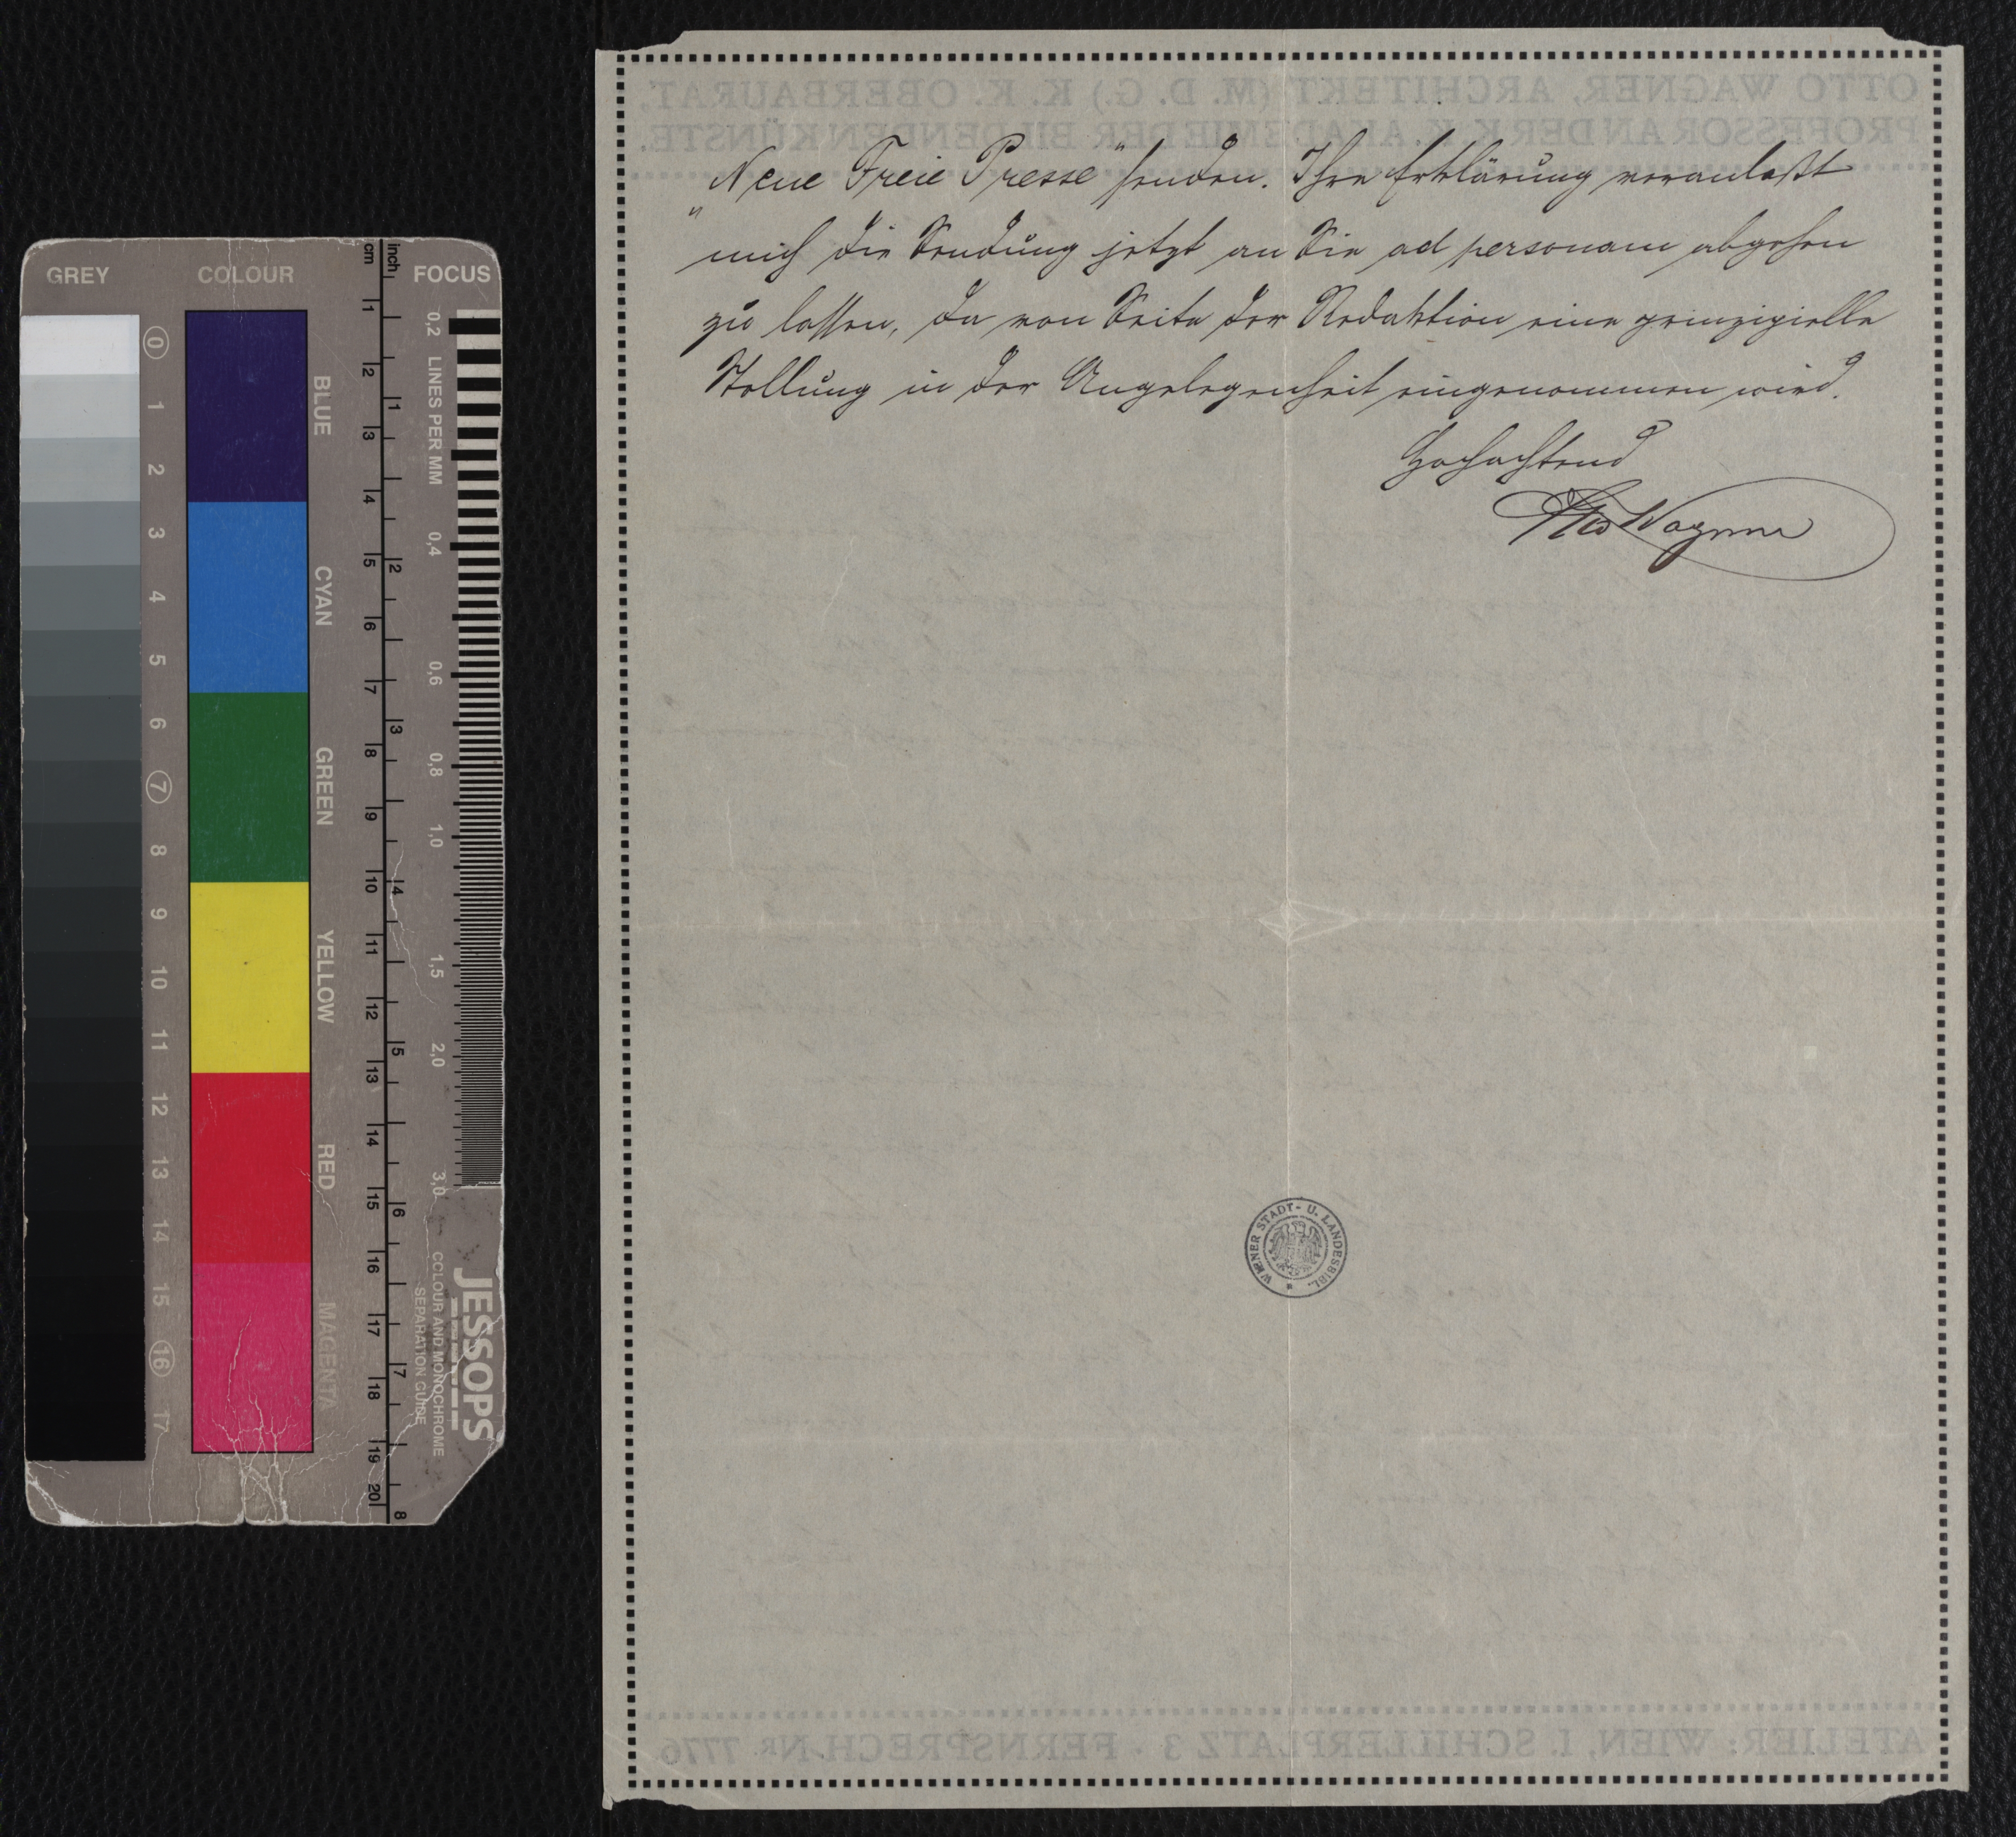 GREY COLOUR FOCUS
cm inch
0 1 2 3 4 5 6 7 8 9 10 11 12 13 14 15 16 17
BLUE
CYAN
GREEN
YELLOW
RED
MAGENTA
1 2 3 4 5 6 7 8 9 10 11 12 13 14 15 16 17 18 19 20
1 2 3 4 5 6 7 8
0,2 LINES PER MM 0,4 0,6 0,8 1,0 1,5 2,0 3,0
JESSOPS
COLOUR AND MONOCHROME
SEPARATION GUIDE
OTTO WAGNER, ARCHITEKT (M. D. G.) K. K. OBERBAURAT,
PROFESSOR AN DER K. K. AKADEMIE DER BILDENDEN KÜNSTE.
„Neue Freie Presse“ senden. Ihre Erklärung veranlaßt
mich die Sendung jetzt an Sie ad personam abgehen
zu lassen, da von Seite der Redaktion eine prinzipielle
Stellung in der Angelegenheit eingenommen wird.
Hochachtend
Otto Wagner
WIENER STADT- U. LANDESBIBL.
ATELIER: WIEN, I. SCHILLERPLATZ 3 · FERNSPRECH-NR 7776